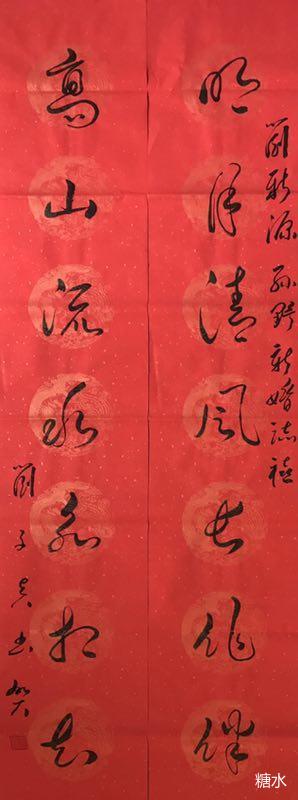 劉新源 孫野 新婚誌禧
明月清风长作伴
高山流水相知
劉子书贺
糖水